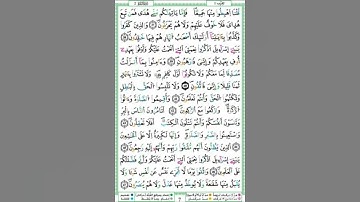 قُلْنَا ٱهْبِطُوا۟ مِنْهَا جَمِيعًا فَإِمَّا يَأْتِيَنَّكُم مِّنِّى هُدًى فَمَن تَبِعَ
هُدَاىَ فَلَا خَوْفٌ عَلَيْهِمْ وَلَا هُمْ يَحْزَنُونَ وَٱلَّذِينَ كَفَرُوا۟
وَكَذَّبُوا۟ بِـَٔايَـٰتِنَآ أُو۟لَـٰٓئِكَ أَصْحَـٰبُ ٱلنَّارِ هُمْ فِيهَا خَـٰلِدُونَ
يَـٰبَنِىٓ إِسْرَٰٓءِيلَ ٱذْكُرُوا۟ نِعْمَتِىَ ٱلَّتِىٓ أَنْعَمْتُ عَلَيْكُمْ وَأَوْفُوا۟ بِعَهْدِىٓ
أُوفِ بِعَهْدِكُمْ وَإِيَّـٰىَ فَٱرْهَبُونِ وَءَامِنُوا۟ بِمَآ أَنزَلْتُ
مُصَدِّقًا لِّمَا مَعَكُمْ وَلَا تَكُونُوٓا۟ أَوَّلَ كَافِرٍۭ بِهِۦ وَلَا تَشْتَرُوا۟ بِـَٔايَـٰتِى
ثَمَنًا قَلِيلًا وَإِيَّـٰىَ فَٱتَّقُونِ وَلَا تَلْبِسُوا۟ ٱلْحَقَّ بِٱلْبَـٰطِلِ
وَتَكْتُمُوا۟ ٱلْحَقَّ وَأَنتُمْ تَعْلَمُونَ وَأَقِيمُوا۟ ٱلصَّلَوٰةَ وَءَاتُوا۟
ٱلزَّكَوٰةَ وَٱرْكَعُوا۟ مَعَ ٱلرَّٰكِعِينَ أَتَأْمُرُونَ ٱلنَّاسَ بِٱلْبِرِّ
وَتَنسَوْنَ أَنفُسَكُمْ وَأَنتُمْ تَتْلُونَ ٱلْكِتَـٰبَ أَفَلَا تَعْقِلُونَ
وَٱسْتَعِينُوا۟ بِٱلصَّبْرِ وَٱلصَّلَوٰةِ وَإِنَّهَا لَكَبِيرَةٌ إِلَّا عَلَى ٱلْخَـٰشِعِينَ
ٱلَّذِينَ يَظُنُّونَ أَنَّهُم مُّلَـٰقُوا۟ رَبِّهِمْ وَأَنَّهُمْ إِلَيْهِ رَٰجِعُونَ
يَـٰبَنِىٓ إِسْرَٰٓءِيلَ ٱذْكُرُوا۟ نِعْمَتِىَ ٱلَّتِىٓ أَنْعَمْتُ عَلَيْكُمْ وَأَنِّى فَضَّلْتُكُمْ
عَلَى ٱلْعَـٰلَمِينَ وَٱتَّقُوا۟ يَوْمًا لَّا تَجْزِى نَفْسٌ عَن نَّفْسٍ شَيْـًٔا وَلَا
يُقْبَلُ مِنْهَا شَفَـٰعَةٌ وَلَا يُؤْخَذُ مِنْهَا عَدْلٌ وَلَا هُمْ يُنصَرُونَ